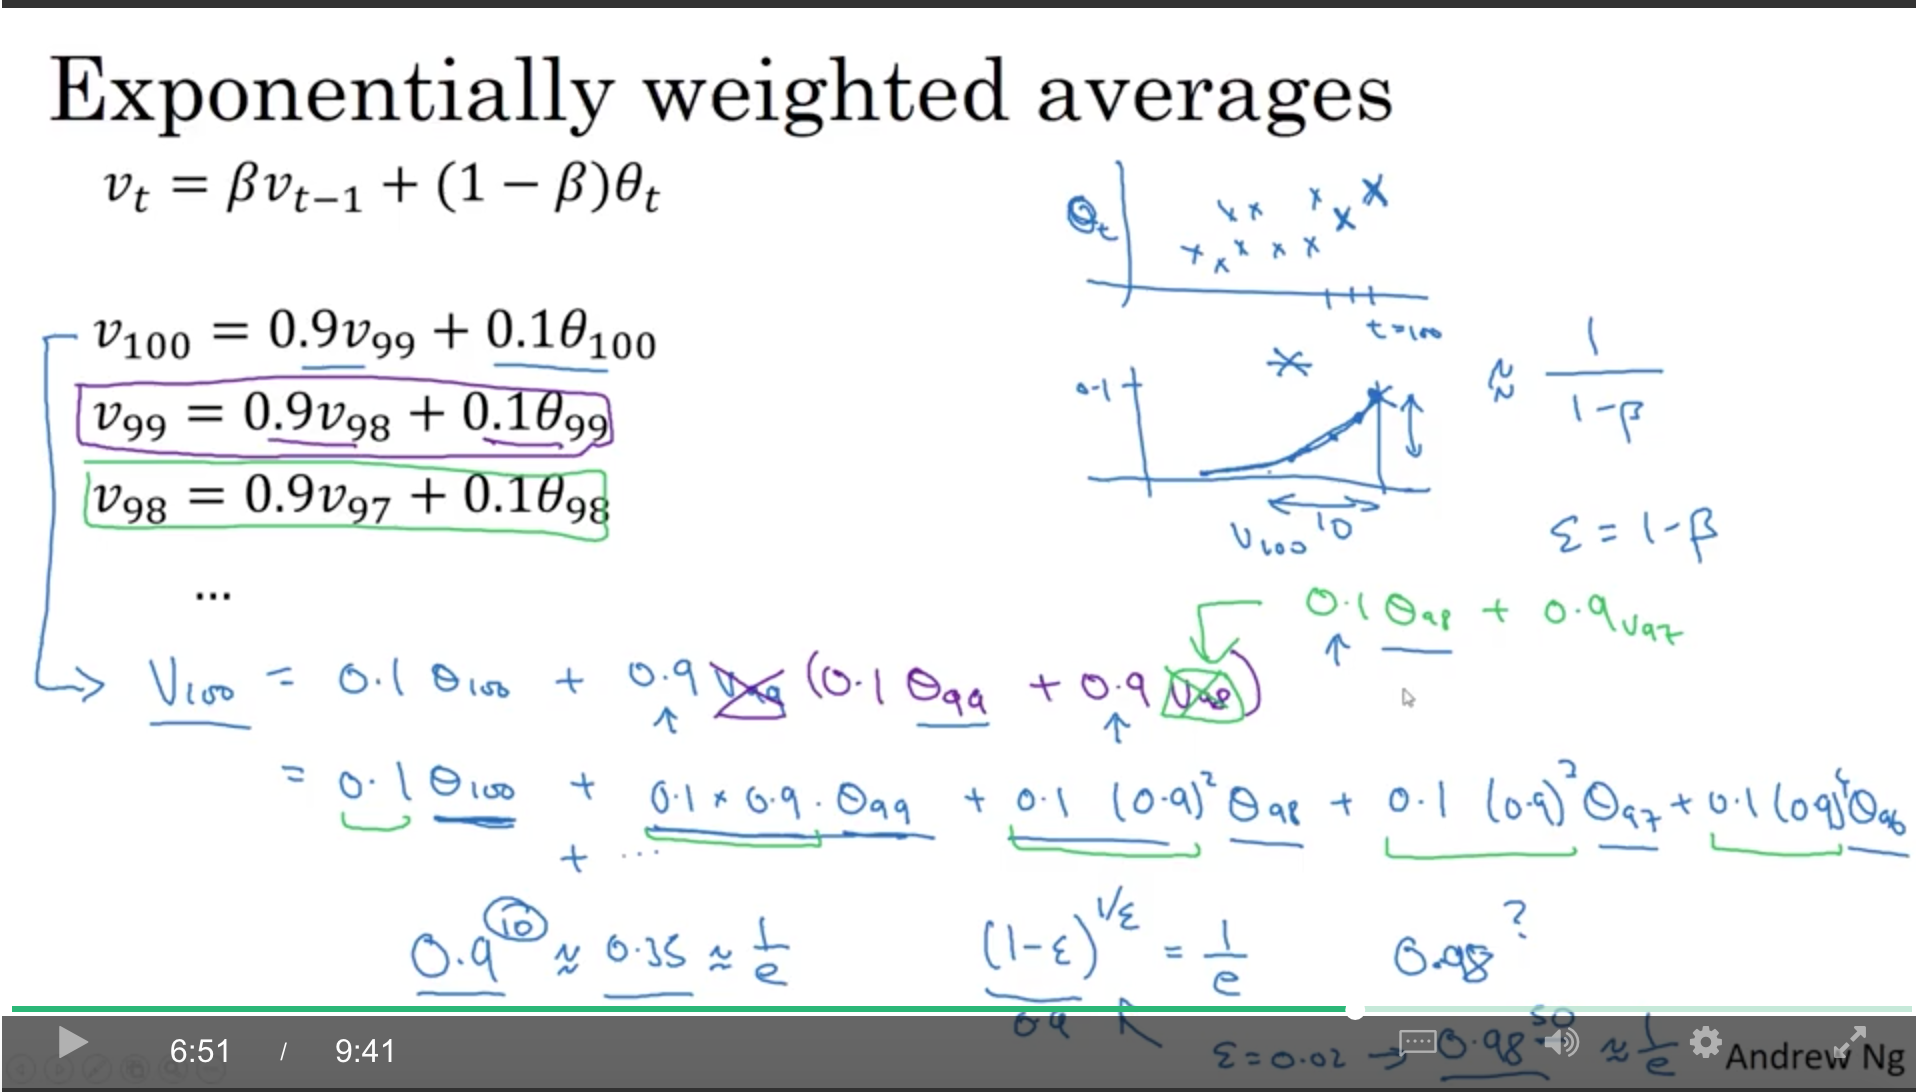 Exponentially weighted averages
v_t = βv_{t−1} + (1 − β)θ_t
θ_t
t=100
v_{100} = 0.9v_{99} + 0.1θ_{100}
v_{99} = 0.9v_{98} + 0.1θ_{99}
v_{98} = 0.9v_{97} + 0.1θ_{98}
...
0.1
10
V_{100}
≈ 1/(1-β)
ε = 1-β
0.1 θ_{98} + 0.9 V_{97}
V_{100} = 0.1 θ_{100} + 0.9 V_{99} (0.1 θ_{99} + 0.9 V_{98})
= 0.1 θ_{100} + 0.1 × 0.9 · θ_{99} + 0.1 (0.9)^2 θ_{98} + 0.1 (0.9)^3 θ_{97} + 0.1 (0.9)^4 θ_{96}
+ ...
0.9^{10} ≈ 0.35 ≈ 1/e
(1-ε)^{1/ε} = 1/e
0.9
0.98^?
ε = 0.02 → 0.98^{50} ≈ 1/e
6:51 / 9:41
Andrew Ng